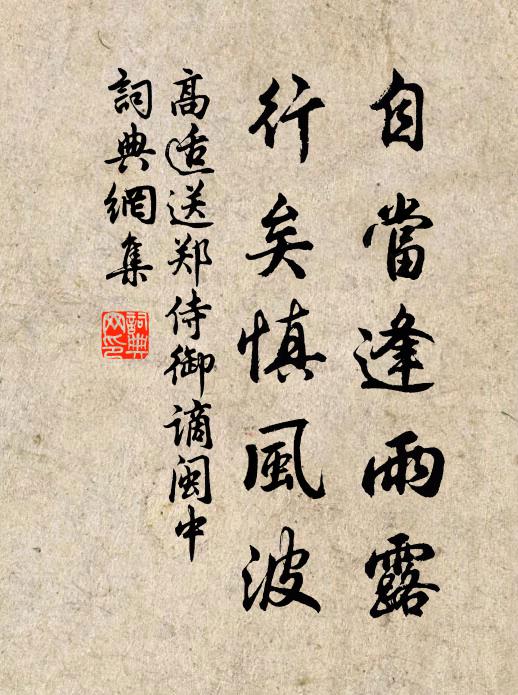 自當逢雨露
行矣慎風波
高适送郑侍御谪闽中
詞典網集
詞典网印